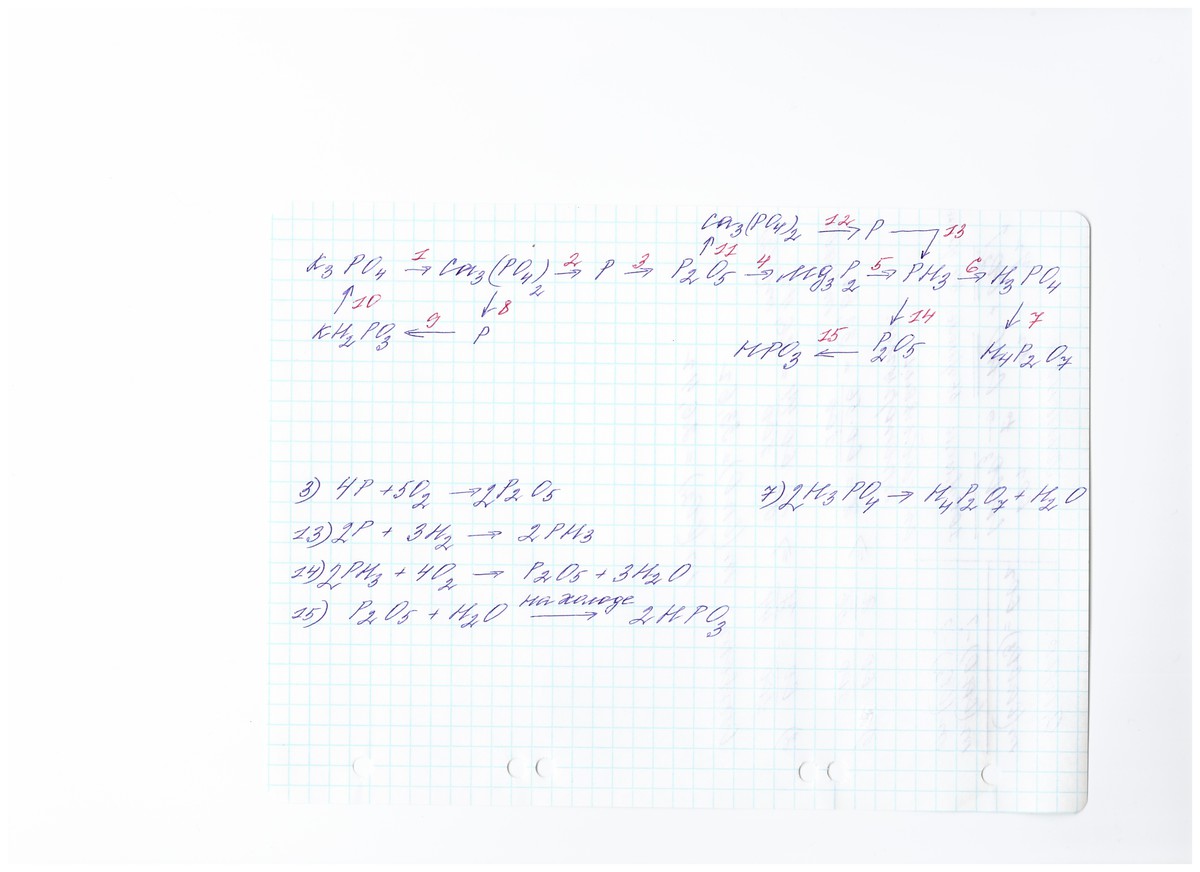 Ca₃(PO₄)₂ 12→ P 13
↑11
K₃PO₄ 1→ Ca₃(PO₄)₂ 2→ P 3→ P₂O₅ 4→ Mg₃P₂ 5→ PH₃ 6→ H₃PO₄
↑10 ↓8 ↓14 ↓7
KH₂PO₃ ←9 P HPO₃ ←15 P₂O₅ H₄P₂O₇
3) 4P + 5O₂ → 2P₂O₅ 7) 2H₃PO₄ → H₄P₂O₇ + H₂O
13) 2P + 3H₂ → 2PH₃
14) 2PH₃ + 4O₂ → P₂O₅ + 3H₂O
на холоде
15) P₂O₅ + H₂O → 2HPO₃